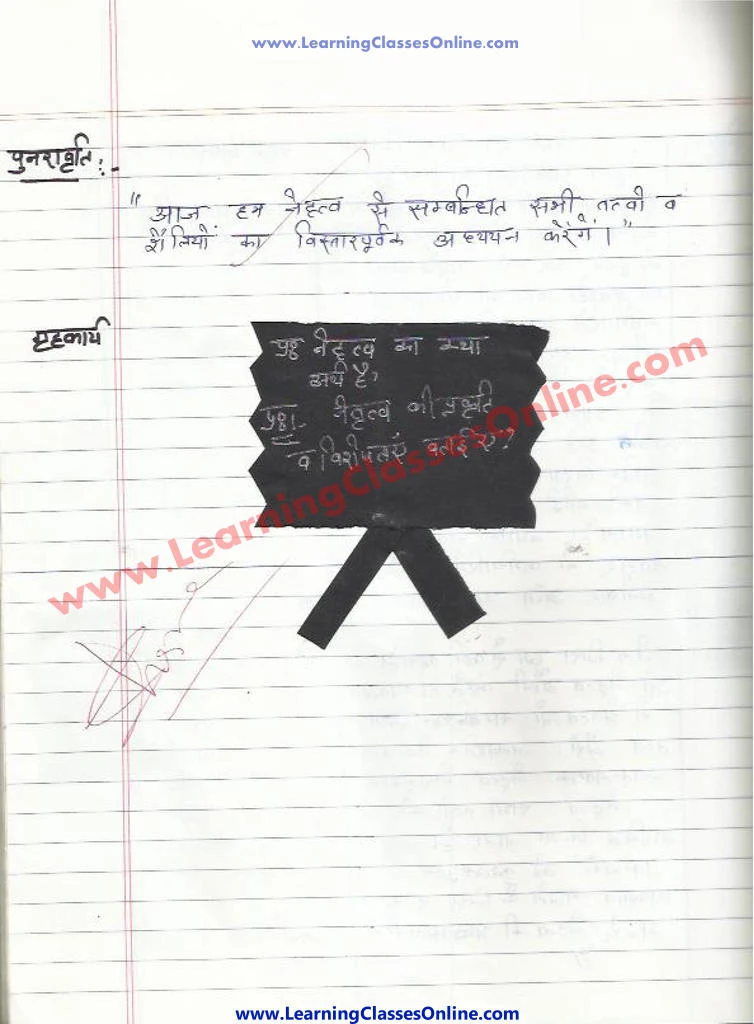 www.LearningClassesOnline.com
पुनरावृति:-
"आज हम नेतृत्व से सम्बन्धित सभी तत्वों व
शैलियों का विस्तारपूर्वक अध्ययन करेंगें।"
गृहकार्य
प्रश्न नेतृत्व का क्या
अर्थ है,
प्रश्न- नेतृत्व की प्रकृति
व विशेषताएं बताईए?
www.LearningClassesOnline.com
www.LearningClassesOnline.com